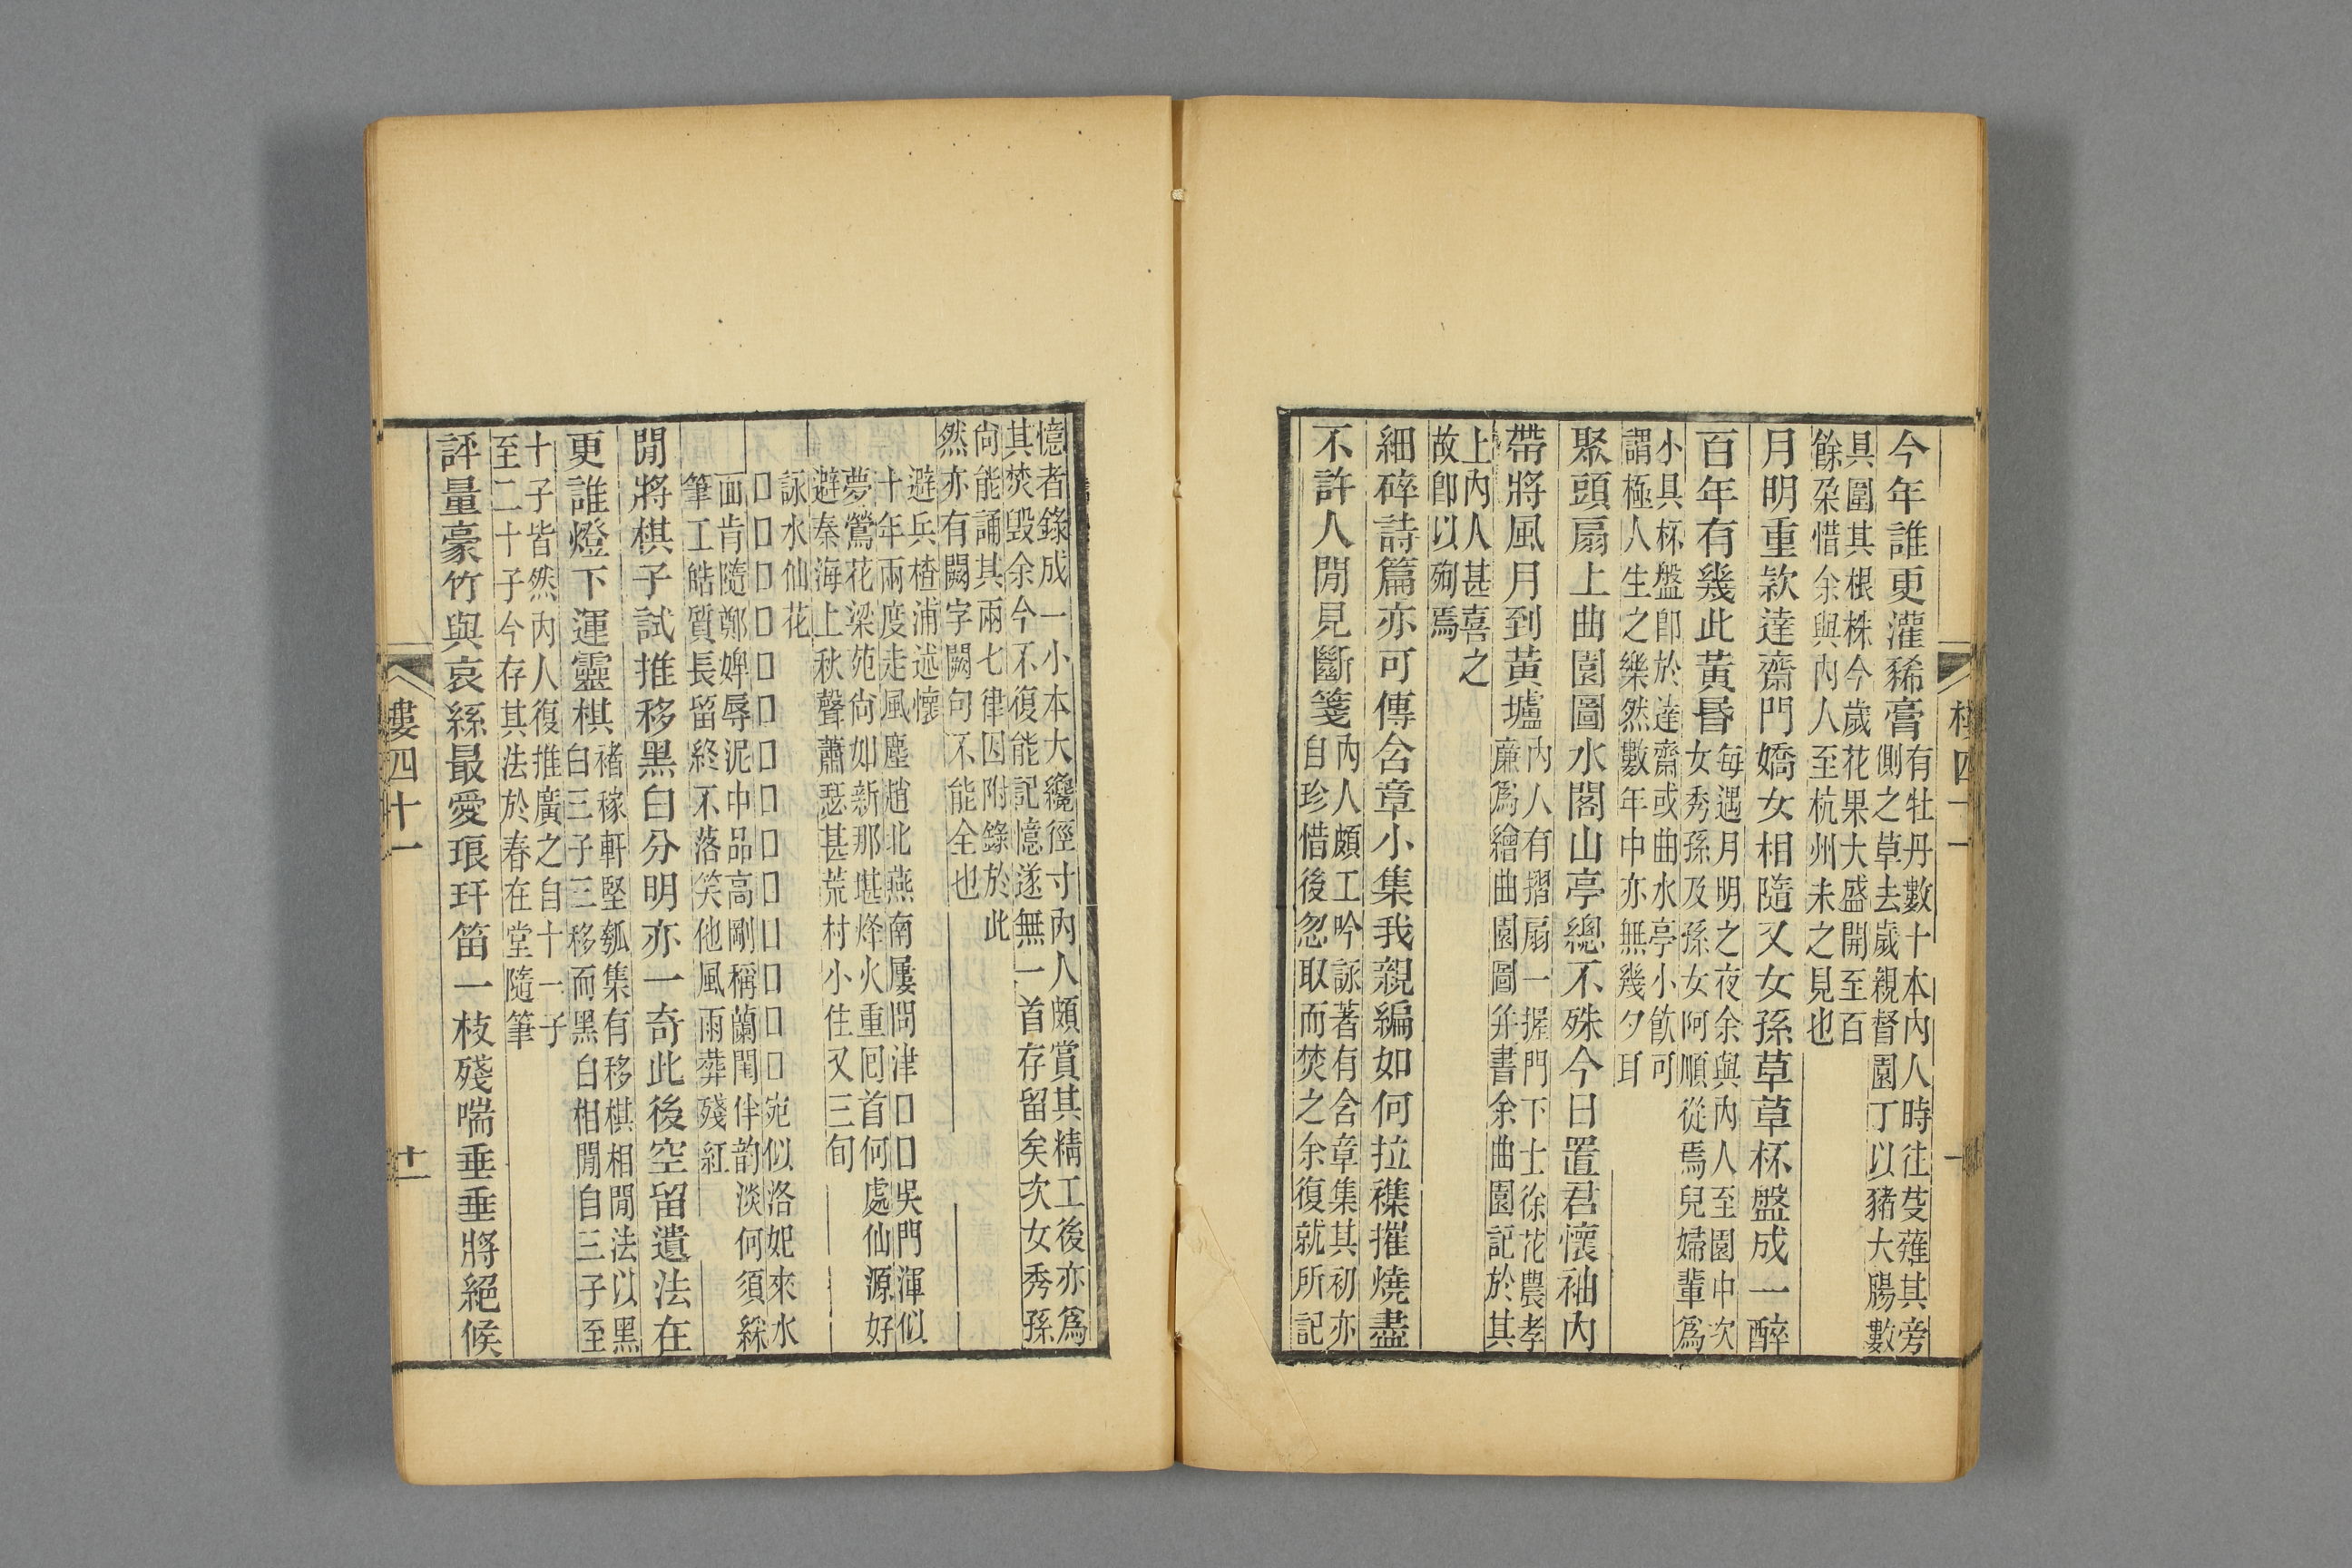 今年誰更灌豨膏
有牡丹數十本內人時往芟薙其旁
側之草去歲親督園丁以豬大腸數
具圍其根株今歲花果大盛開至百
餘朶惜余與內人至杭州未之見也
月明重款達齋門嬌女相隨又女孫草草杯盤成一醉
百年有幾此黃昏
每遇月明之夜余與內人至園中次
女秀孫及孫女阿順從焉兒婦輩爲
小具杯盤卽於達齋或曲水亭小飮可
謂極人生之樂然數年中亦無幾夕耳
聚頭扇上曲園圖水閣山亭總不殊今日置君懷袖內
帶將風月到黃壚
內人有摺扇一握門下士徐花農孝
廉爲繪曲園圖幷書余曲園記於其
上內人甚喜之
故卽以殉焉
細碎詩篇亦可傳含章小集我親編如何拉襍摧燒盡
不許人閒見斷箋
內人頗工吟詠著有含章集其初亦
自珍惜後忽取而焚之余復就所記
憶者錄成一小本大纔徑寸內人頗賞其精工後亦爲
其焚毀余今不復能記憶遂無一首存留矣次女秀孫
尙能誦其兩七律因附錄於此
然亦有闕字闕句不能全也
避兵楂浦述懷
十年兩度走風塵趙北燕南屢問津口口吳門渾似
夢鶯花梁苑尙如新那堪烽火重回首何處仙源好
避秦海上秋聲蕭瑟甚荒村小住又三旬
詠水仙花
口口口口口口口口口口口口口口宛似洛妃來水
面肯隨鄭婢辱泥中品高剛稱蘭閨伴韵淡何須綵
筆工皓質長留終不落笑他風雨葬殘紅
閒將棋子試推移黑白分明亦一奇此後空留遺法在
更誰燈下運靈棋
褚稼軒堅瓠集有移棋相閒法以黑
白三子三移而黑白相閒自三子至
十子皆然內人復推廣之自十一子
至二十子今存其法於春在堂隨筆
評量豪竹與哀絲最愛琅玕笛一枝殘喘垂垂將絕候
樓四十一
十一